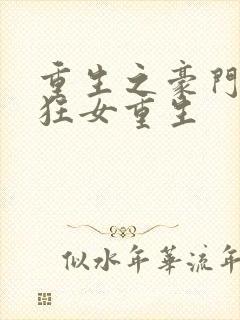 重生之豪門
狂女重生
似水年華流年